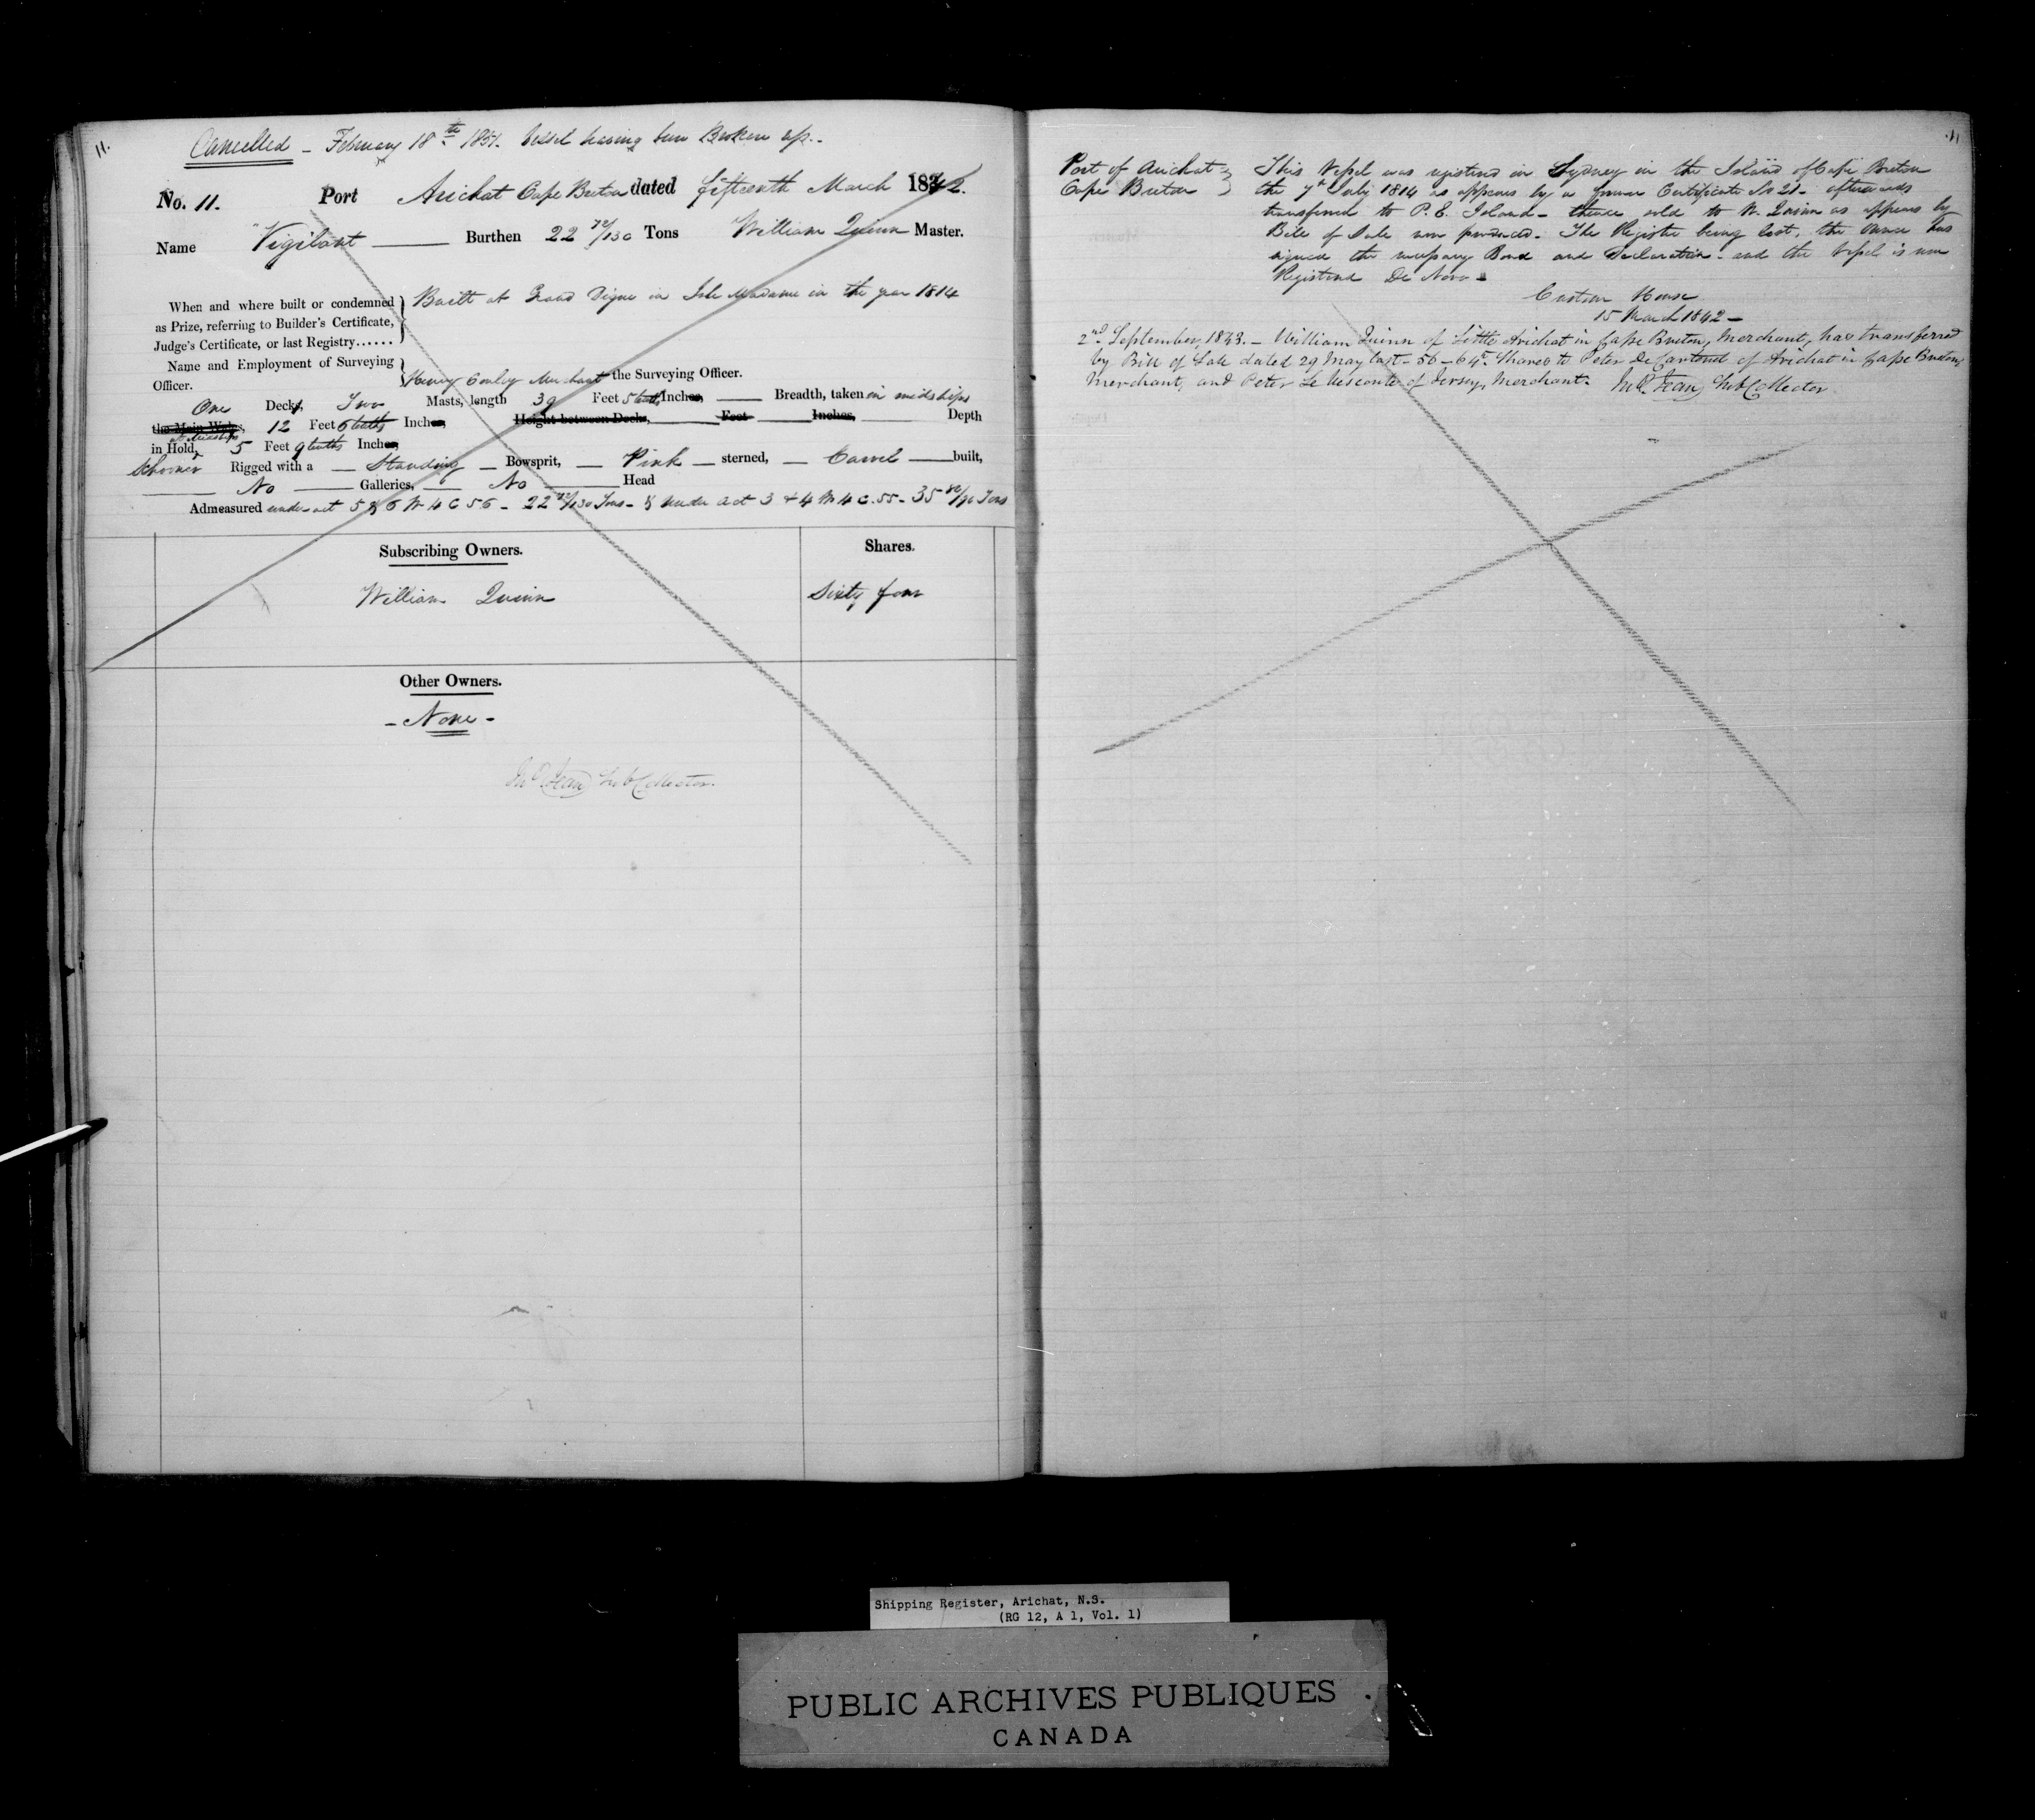 11.
Cancelled - February 18th 1851. Vessel having been Broken up.
No. 11. Port Arichat Cape Breton dated fifteenth March 1842.
Name "Vigilant Burthen 22 72/130 Tons William Quinn Master.
When and where built or condemned
as Prize, referring to Builder's Certificate,
Judge's Certificate, or last Registry......
Built at Grand Digue in Isle Madame in the year 1814
Name and Employment of Surveying
Officer.
Henry Merchant the Surveying Officer.
One Deck, Two Masts, length 39 Feet 5 tenths Inches, Breadth, taken in midships
the Main Wales, 12 Feet 6 tenths Inches, Height between Decks, Feet Inches, Depth
in Hold at Midships 5 Feet 9 tenths Inches
Schooner Rigged with a Standing Bowsprit, Pink sterned, Carvel built,
No Galleries, No Head
Admeasured under act 5 & 6 W 4 C 56 - 22 72/130 Tons - & under act 3 & 4 W 4 C. 55 - 35 Tons
Subscribing Owners. Shares.
William Quinn Sixty four
Other Owners.
- None -
Jno Jean Sub Collector.
11
Port of Arichat
Cape Breton
This Vessel was registered in Sydney in the Island of Cape Breton
the 7th July 1814 as appears by a former Certificate No 21 - afterwards
transferred to P. E. Island - thence sold to W. Quinn as appears by
Bill of Sale now produced. The Register being lost, the Owner has
signed the necessary Bond and Declaration - and the Vessel is now
Registered De Novo -
Custom House
15 March 1842 -
2nd September, 1843. - William Quinn of Little Arichat in Cape Breton, Merchant, has transferred
by Bill of Sale dated 29 May last - 56 - 64th Shares to Peter De Carteret of Arichat in Cape Breton,
Merchant, and Peter Le Vesconte of Jersey, Merchant. Jno Jean Sub Collector
Shipping Register, Arichat, N.S.
(RG 12, A 1, Vol. 1)
PUBLIC ARCHIVES PUBLIQUES
CANADA